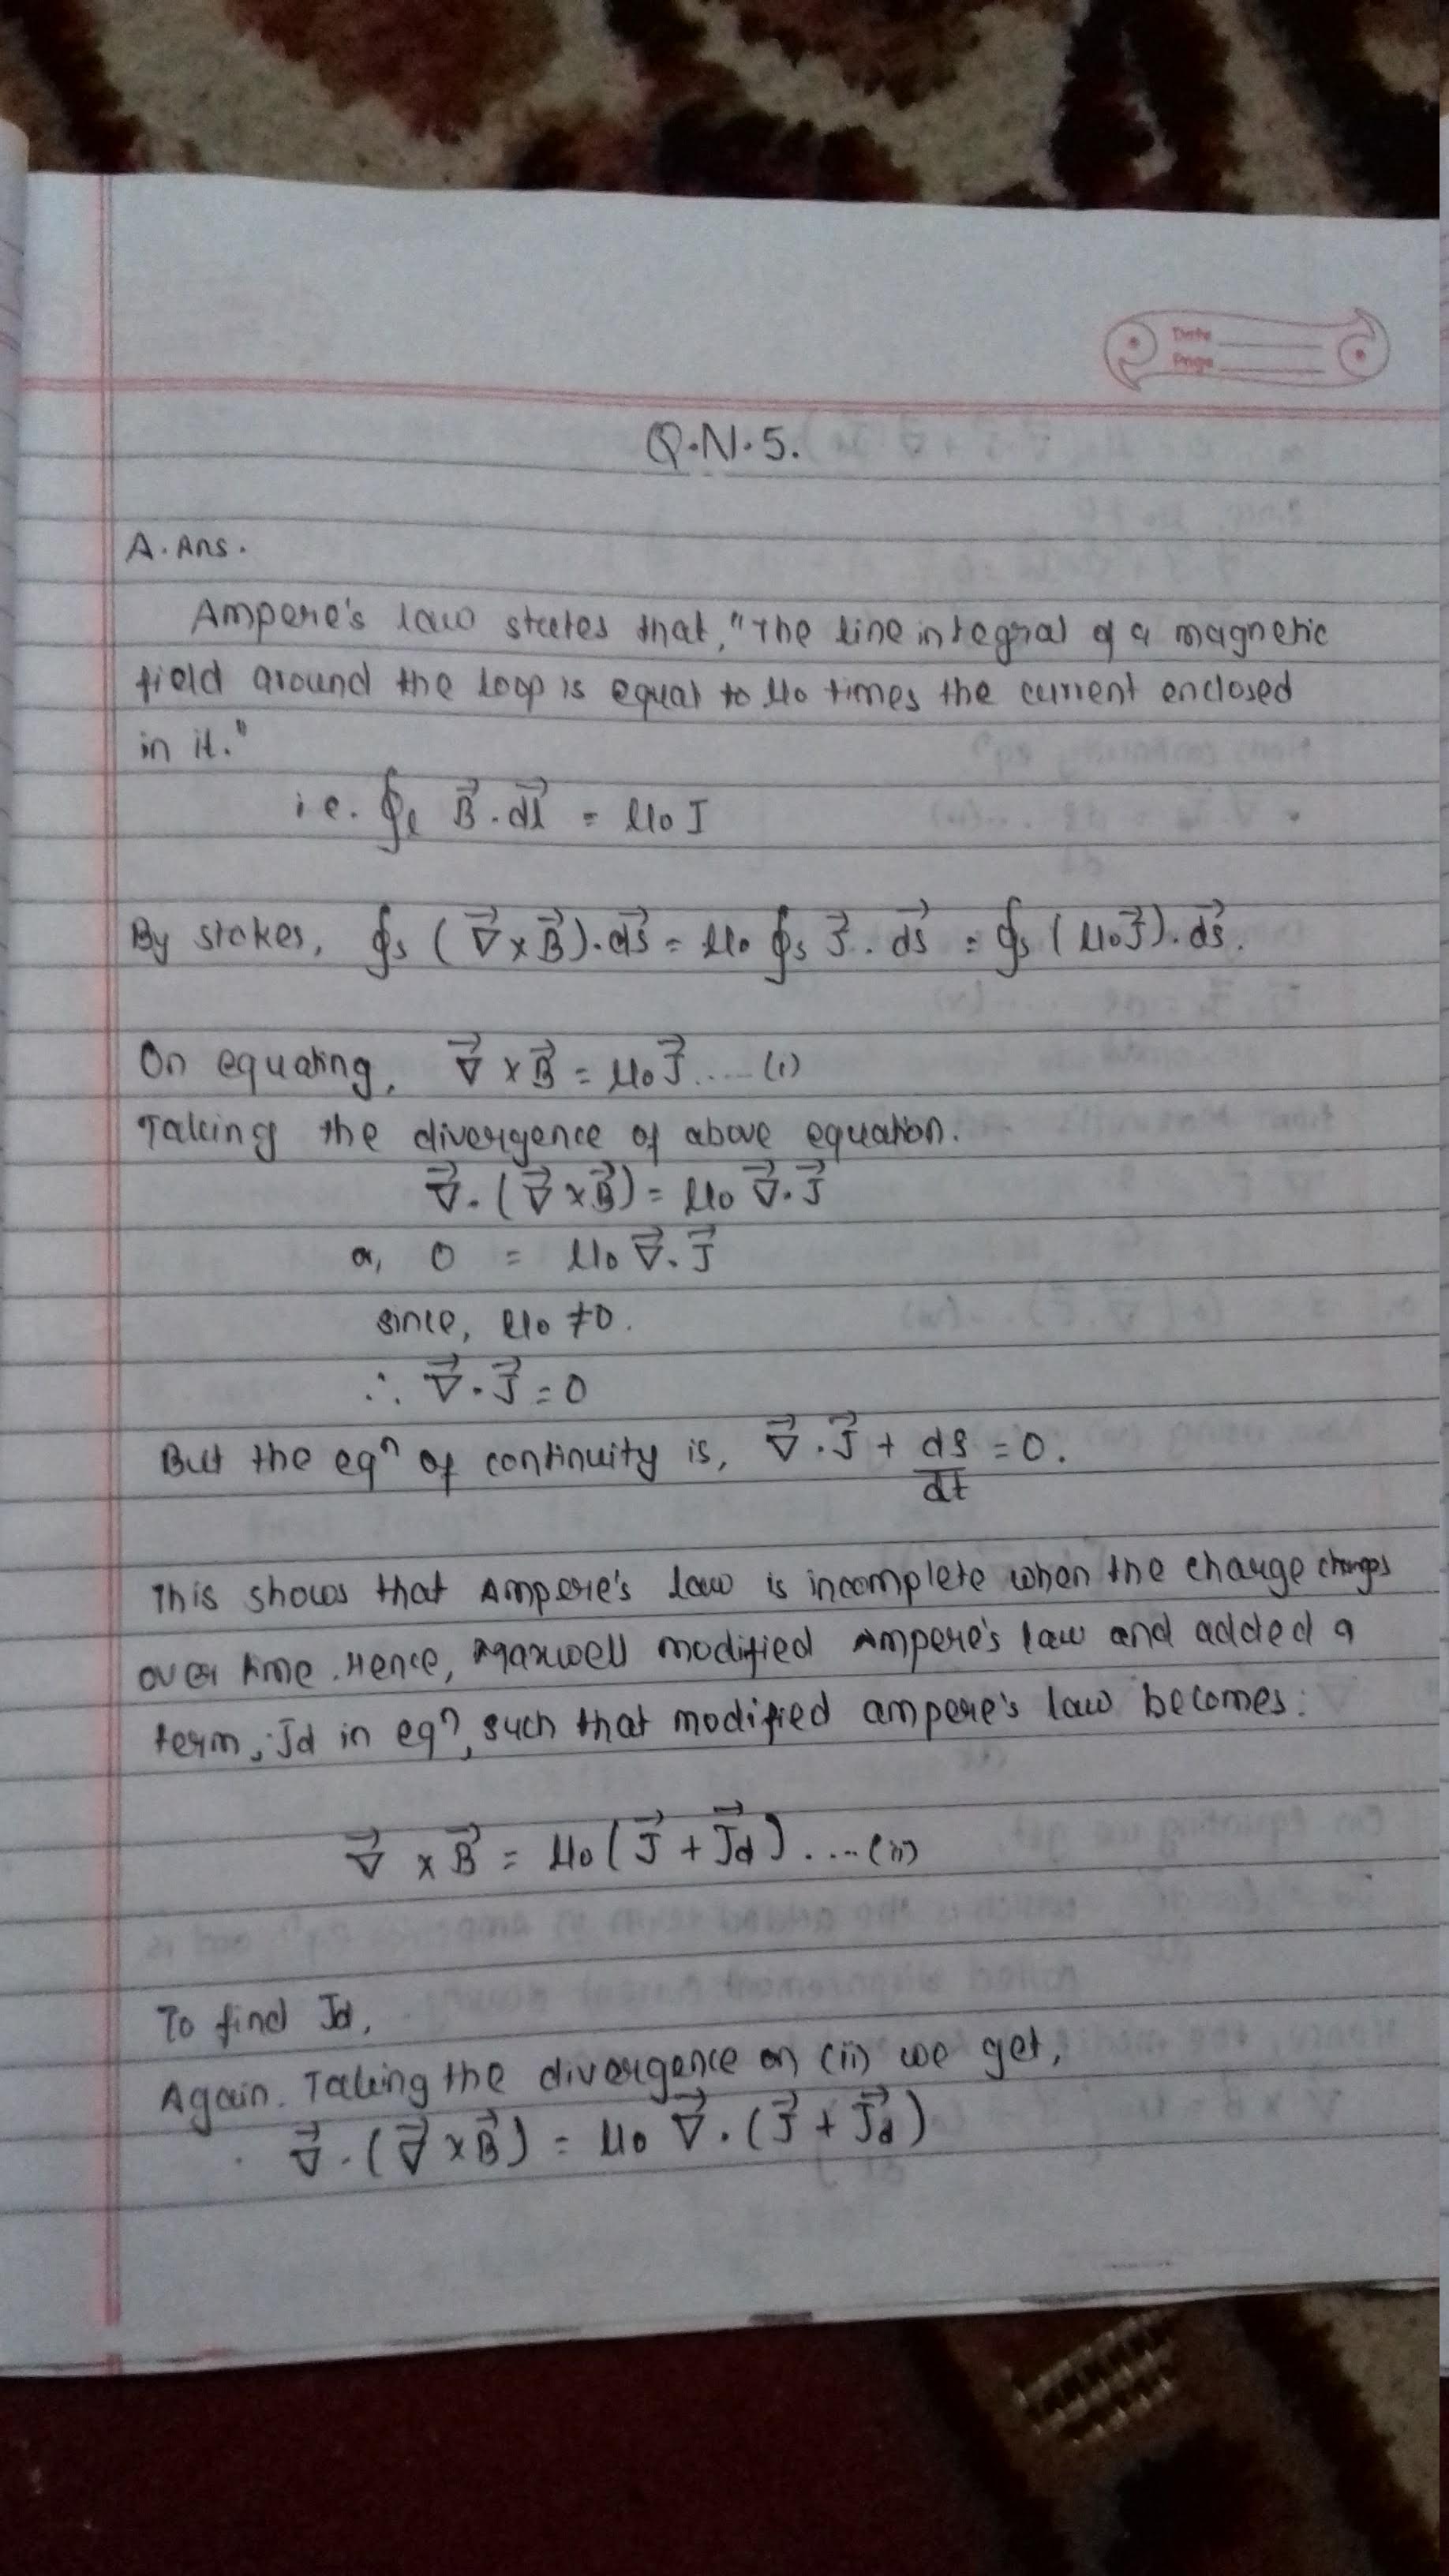 Date
Page
Q.N.5.
A. Ans.
Ampere's law states that, "The line integral of a magnetic
field around the loop is equal to μ0 times the current enclosed
in it."
i.e. ∮l B⃗.dl⃗ = μ0 I
By stokes, ∮s (∇⃗ × B⃗).ds⃗ = μ0 ∮s J⃗. ds⃗ = ∮s (μ0 J⃗).ds⃗.
On equating, ∇⃗ × B⃗ = μ0 J⃗ .... (i)
Taking the divergence of above equation.
∇⃗. (∇⃗ × B⃗) = μ0 ∇⃗. J⃗
or, 0 = μ0 ∇⃗. J⃗
since, μ0 ≠ 0.
∴ ∇⃗. J⃗ = 0
But the eqn of continuity is, ∇⃗. J⃗ + dρ/dt = 0.
This shows that Ampere's law is incomplete when the charge changes
over time. Hence, Maxwell modified Ampere's law and added a
term, Jd in eqn, such that modified ampere's law becomes:
∇⃗ × B⃗ = μ0 (J⃗ + J⃗d) .... (ii)
To find Jd,
Again. Taking the divergence on (ii) we get,
∇⃗. (∇⃗ × B⃗) = μ0 ∇⃗. (J⃗ + J⃗d)